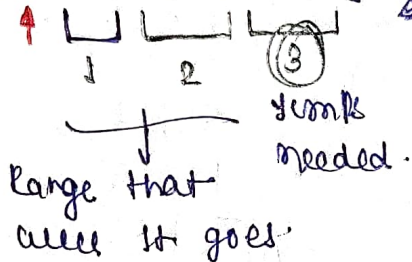 1 2 3
jumps
needed.
Range that
it goes.